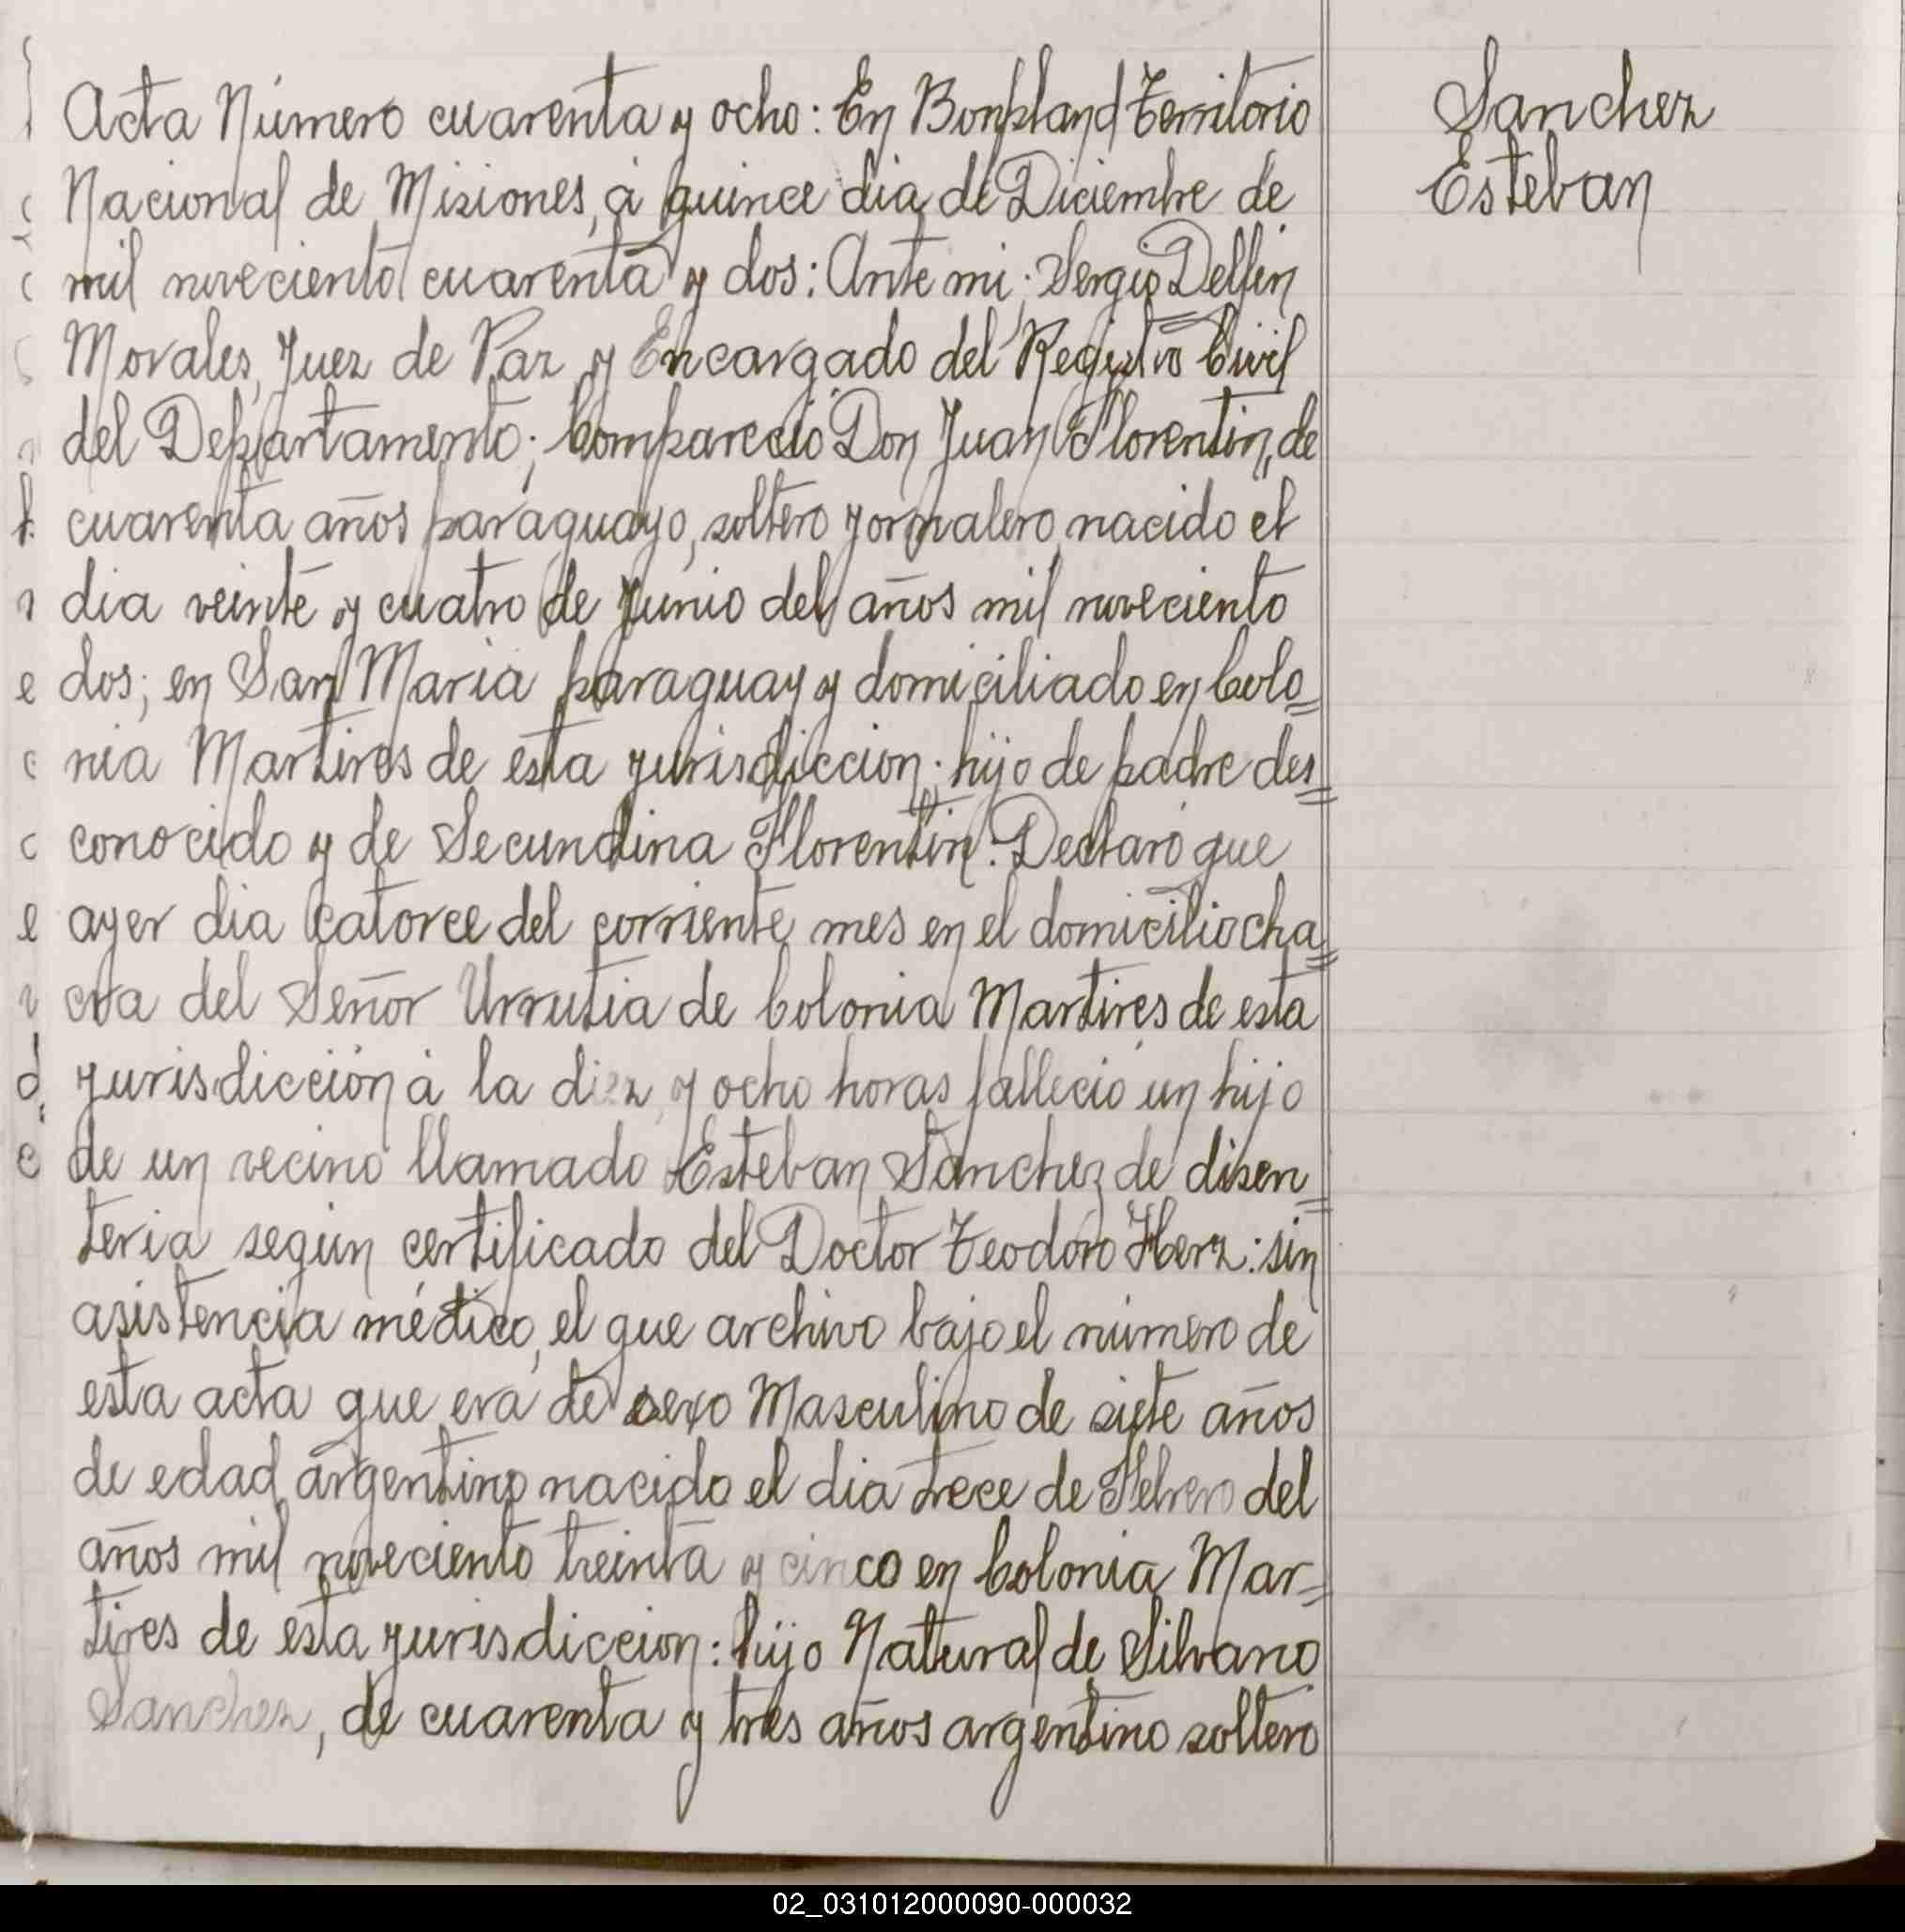 Acta Número cuarenta y ocho: En Bonpland Territorio
Nacional de Misiones, á quince dia de Diciembre de
mil noveciento cuarenta y dos: Ante mi; Sergio Delfin
Morales, Juez de Paz y Encargado del Registro Civil
del Departamento; Compareció Don Juan Florentin, de
cuarenta años paraguayo, soltero yornalero, nacido el
dia veinte y cuatro de Junio del años mil noveciento
dos; en San Maria paraguay y domiciliado en Colo=
nia Martires de esta yurisdiccion; hijo de padre des=
conocido y de Secundina Florentin: Declaró que
ayer dia catorce del corriente mes en el domicilio cha=
cra del Señor Urrutia de Colonia Martires de esta
yurisdicción á la diez y ocho horas falleció un hijo
de un vecino llamado Esteban Sanchez de disen=
teria según certificado del Doctor Teodoro Herz: sin
asistencia médico, el que archivo bajo el número de
esta acta que era de sexo Masculino de siete años
de edad argentino nacido el dia trece de Febrero del
años mil noveciento treinta y cinco en Colonia Mar=
tires de esta yurisdiccion: hijo Natural de Silvano
Sanchez, de cuarenta y tres años argentino soltero
Sanchez
Esteban
02_031012000090-000032